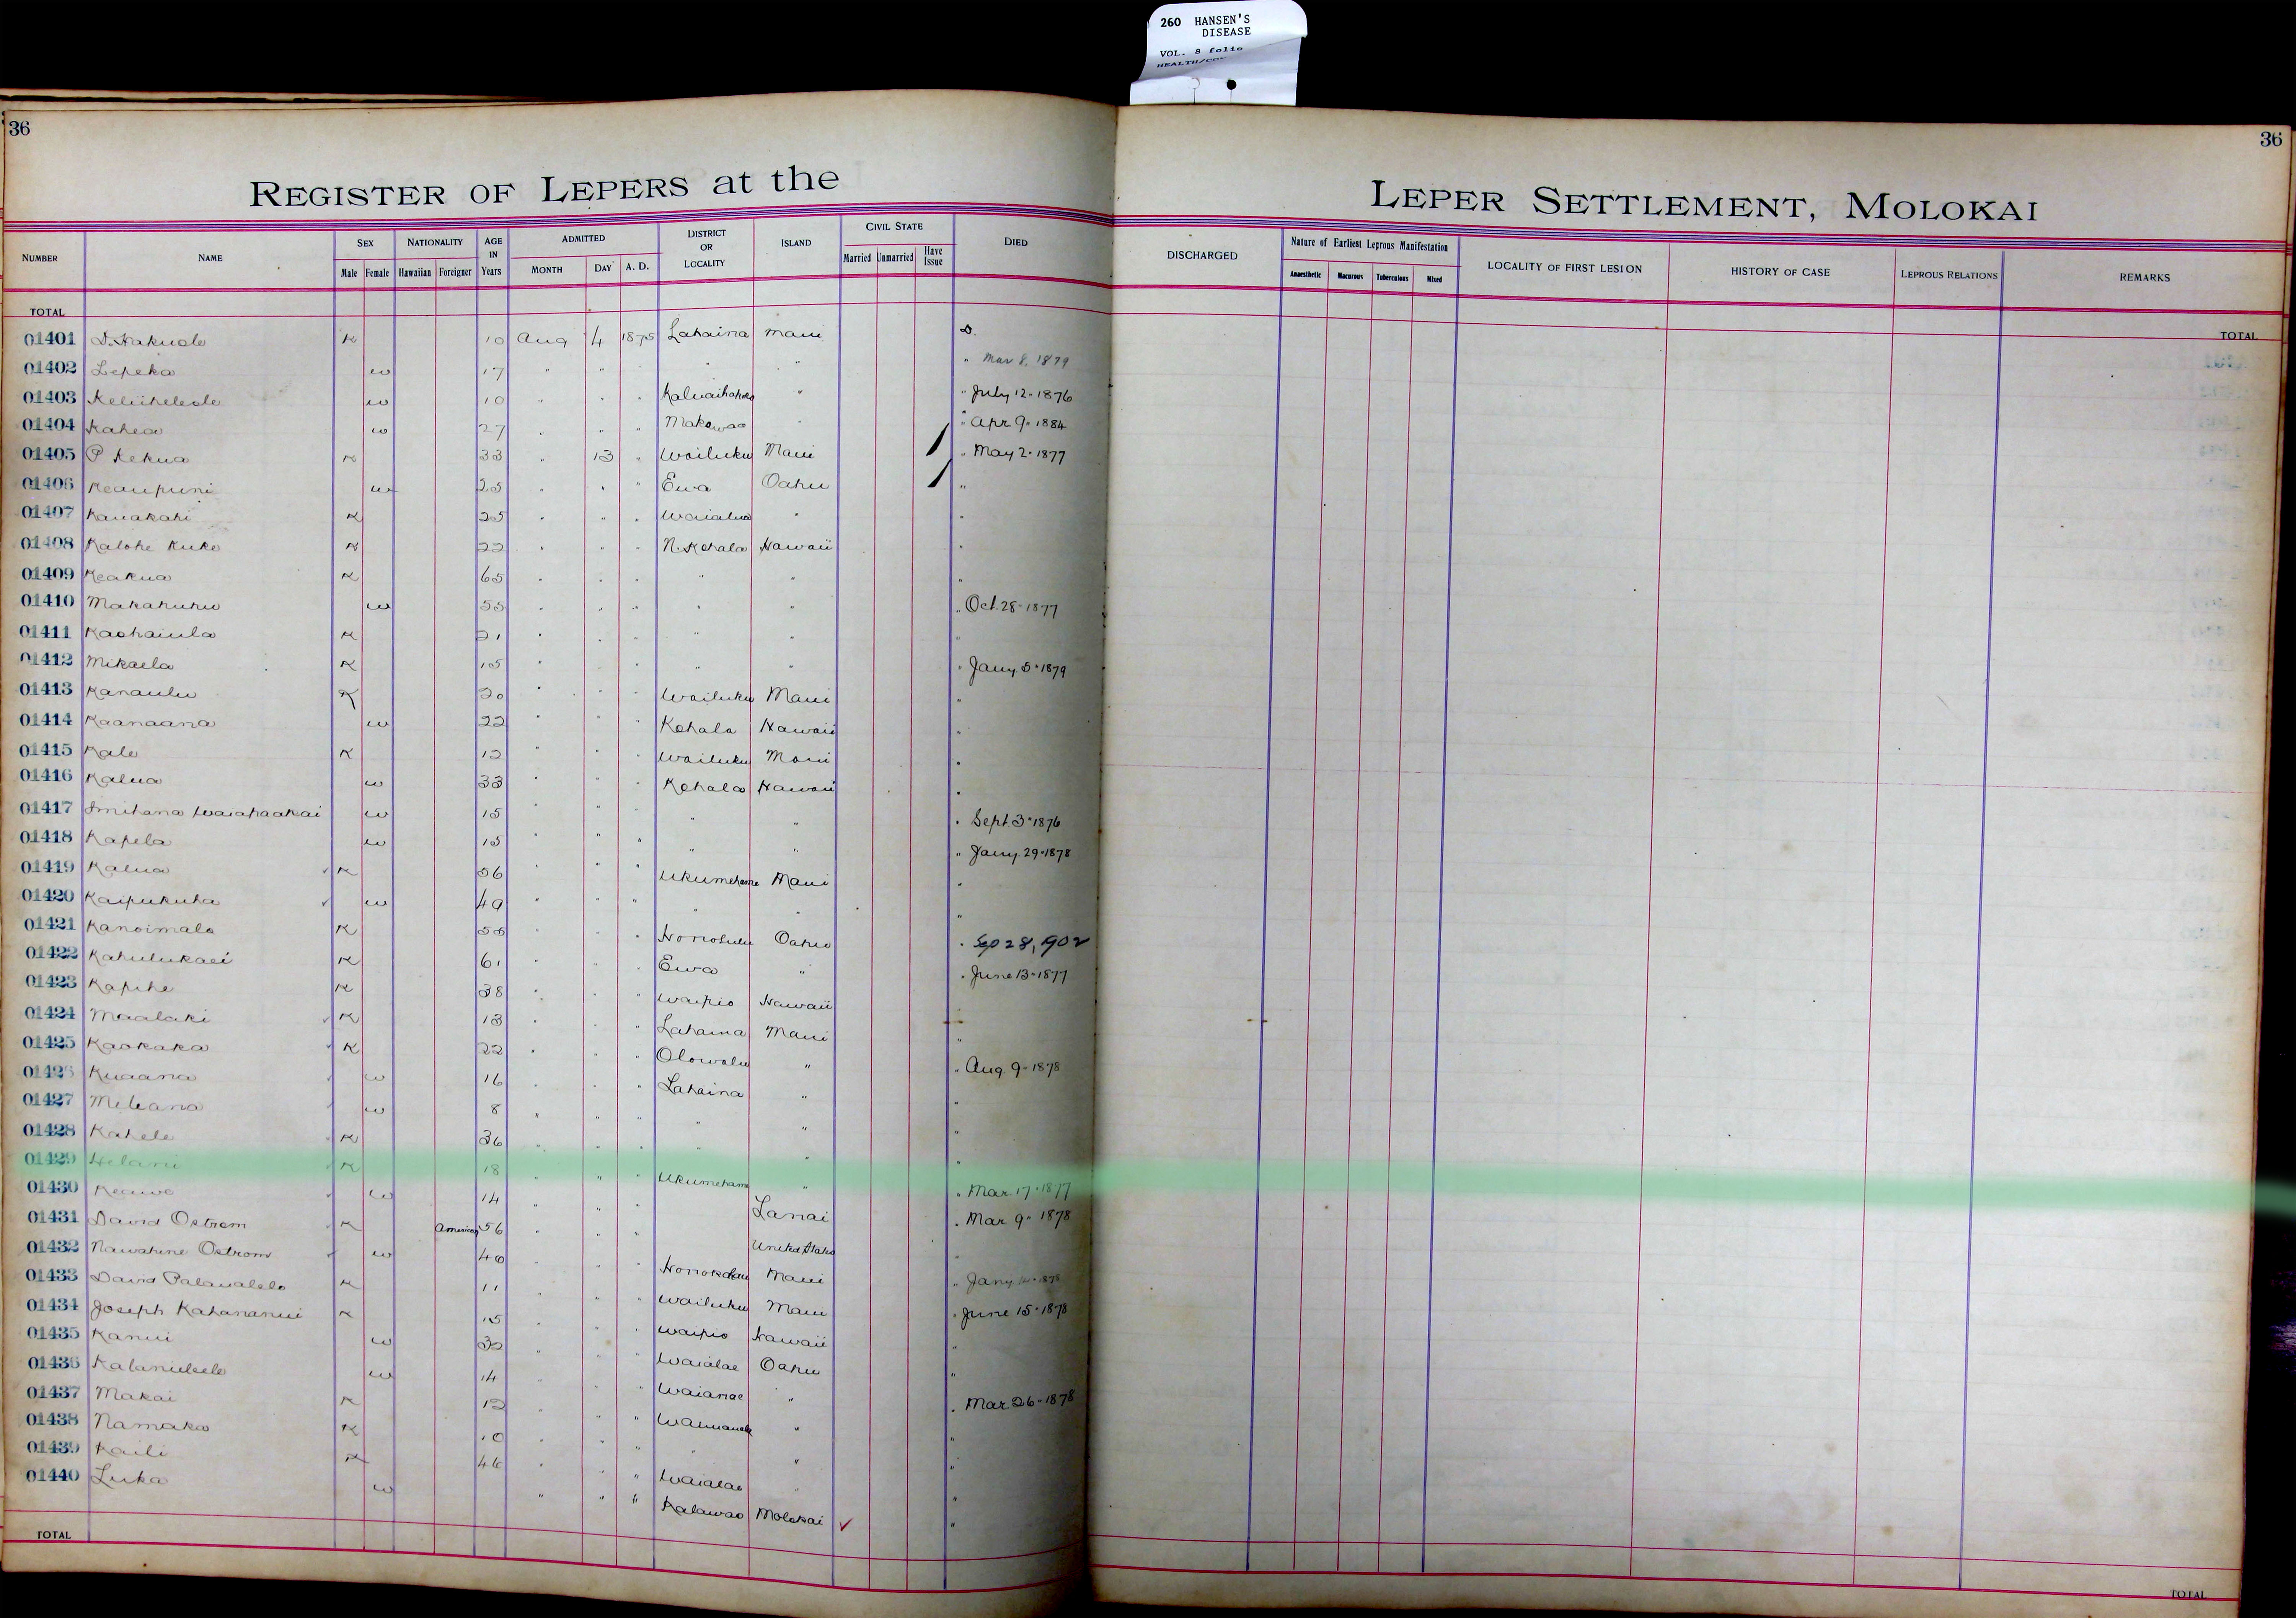 260 HANSEN'S
DISEASE
VOL. 8 folio
36
36
REGISTER OF LEPERS at the LEPER SETTLEMENT, MOLOKAI
NUMBER NAME SEX NATIONALITY AGE IN Years ADMITTED DISTRICT OR LOCALITY ISLAND CIVIL STATE DIED DISCHARGED Nature of Earliest Leprous Manifestation LOCALITY OF FIRST LESION HISTORY OF CASE LEPROUS RELATIONS REMARKS
Male Female Hawaiian Foreigner MONTH DAY A. D. Married Unmarried Have Issue Anaesthetic Macurous Tuberculous Mixed
TOTAL TOTAL
01401 D. Hakuole K 10 Aug 4 1875 Lahaina Maui D.
01402 Lepeka w 17 " " " " " " Mar 8, 1879
01403 w 10 " " " " " July 12 - 1876
01404 Kahea w 27 " " " Makawao " " Apr 9 - 1884
01405 P Kekua K 33 " 13 " Wailuku Maui " May 2 - 1877
01406 Keaupuni w 25 " " " Ewa Oahu "
01407 Kauakahi K 25 " " " Waialua " "
01408 Kalohe Kuke K 22 " " " N. Kohala Hawaii "
01409 Keakua K 65 " " " " " "
01410 Makahuhu w 55 " " " " " " Oct. 28 - 1877
01411 Kaohaiula K 21 " " " " " "
01412 Mikaela K 15 " " " " " " Jany 5 - 1879
01413 Kanaulu K 20 " " " Wailuku Maui "
01414 Kaanaana w 22 " " " Kohala Hawaii "
01415 Kale K 12 " " " Wailuku Maui "
01416 Kalua w 33 " " " Kohala Hawaii "
01417 w 15 " " " " " " Sept. 3 - 1876
01418 Kapela w 15 " " " " " " Jany. 29 - 1878
01419 Kalua K 56 " " " Ukumehame Maui "
01420 Kaipukuha w 49 " " " " " "
01421 Kanoimalo K 55 " " " Honolulu Oahu " Sep 28, 1902
01422 Kahulukaei K 61 " " " Ewa " " June 13 - 1877
01423 Kapihe K 38 " " " Waipio Hawaii
01424 Maalaki K 13 " " " Lahaina Maui "
01425 Kaokaka K 22 " " " Olowalu " " Aug. 9 - 1878
01426 Kuaana w 16 " " " Lahaina " "
01427 Meleana w 8 " " " " " "
01428 Kahele K 36 " " " " " "
01429 Helani K 18 " " " Ukumehame " " Mar. 17 - 1877
01430 Keawe w 14 " " " Lanai " Mar. 9 - 1878
01431 David Ostrom K American 56 " " " United States "
01432 Nawahine Ostrom w 40 " " " Honokohau Maui " Jany
01433 David Palaualelo K 11 " " " Wailuku Maui " June 15 - 1878
01434 Joseph Kahananui K 15 " " " Waipio Hawaii "
01435 Kanui w 32 " " " Waialae Oahu "
01436 w 14 " " " Waianae " " Mar. 26 - 1878
01437 Makai K 12 " " " " "
01438 Namaka K 10 " " " " " "
01439 Kaili K 46 " " " Waialae " "
01440 Luka w " " " Kalawao Molokai "
TOTAL TOTAL